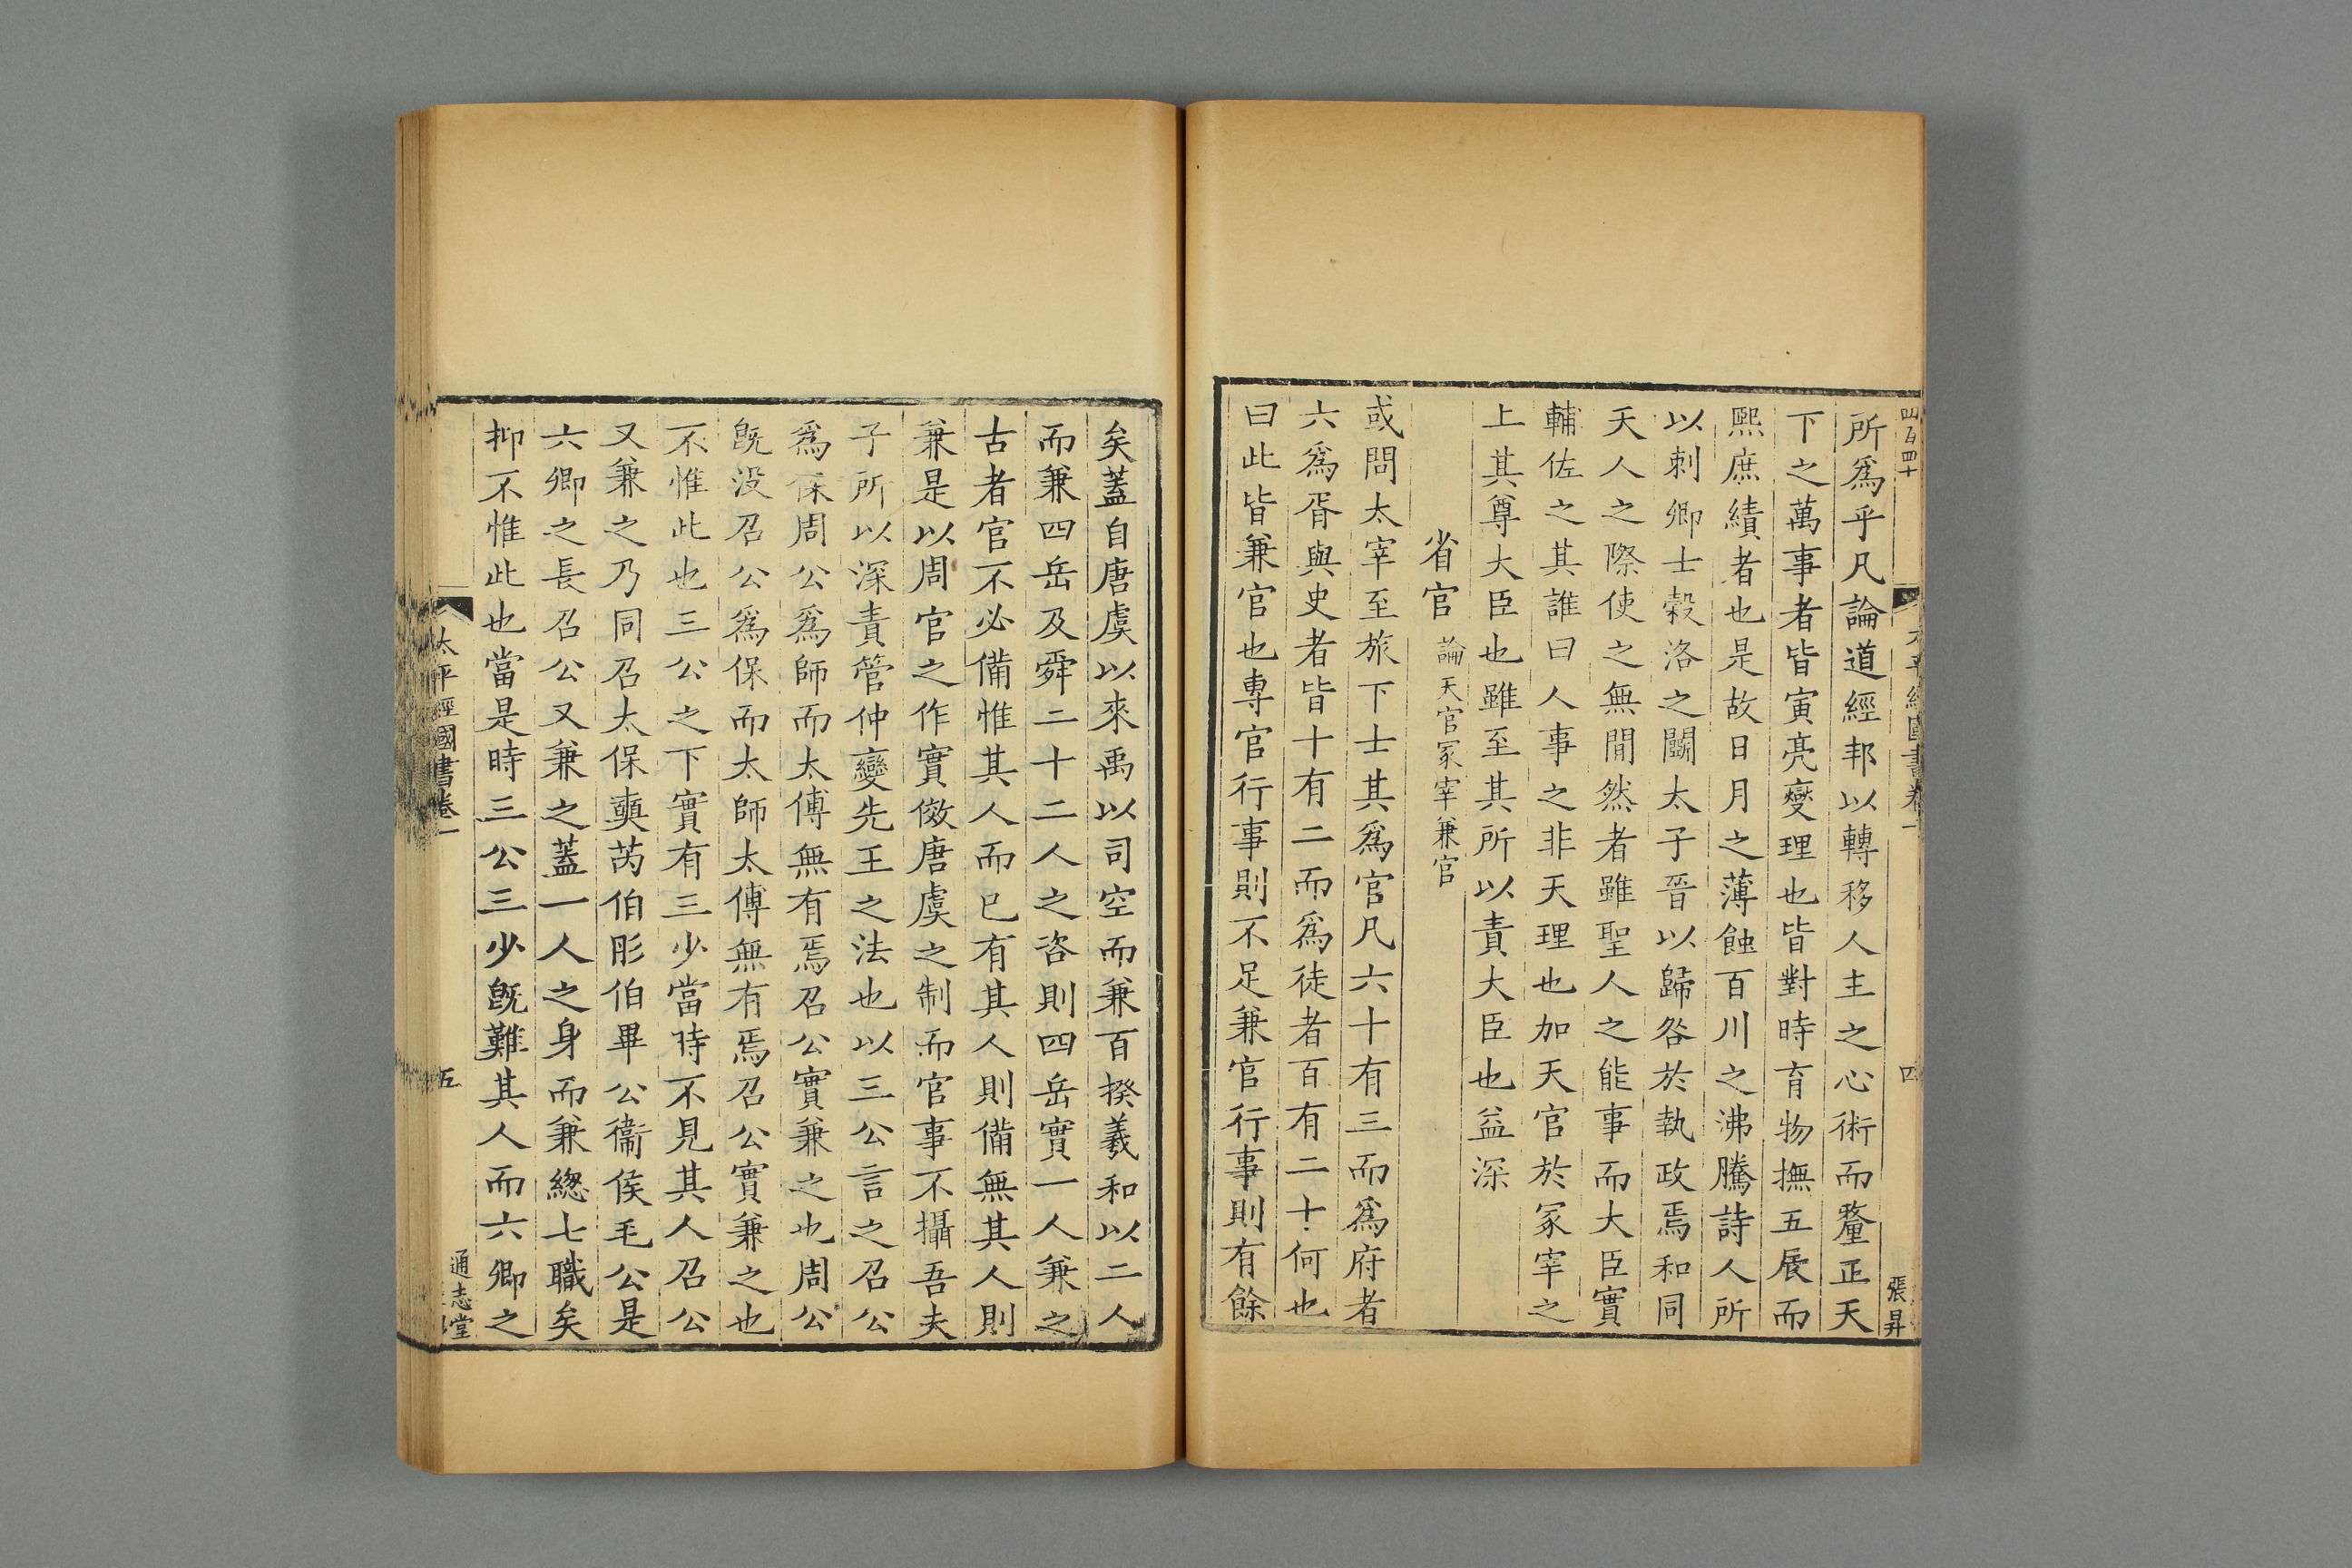 所爲乎凡論道經邦以轉移人主之心術而釐正天
下之萬事者皆寅亮燮理也皆對時育物撫五辰而
熙庶績者也是故日月之薄蝕百川之沸騰詩人所
以刺卿士榖洛之鬭太子晉以歸咎於執政焉和同
天人之際使之無閒然者雖聖人之能事而大臣實
輔佐之其誰曰人事之非天理也加天官於冢宰之
上其尊大臣也雖至其所以責大臣也益深
省官 論天官冢宰兼官
或問太宰至旅下士其爲官凡六十有三而爲府者
六爲胥與史者皆十有二而爲徒者百有二十何也
曰此皆兼官也專官行事則不足兼官行事則有餘
張昇
矣蓋自唐虞以來禹以司空而兼百揆羲和以二人
而兼四岳及舜二十二人之咨則四岳實一人兼之
古者官不必備惟其人而已有其人則備無其人則
兼是以周官之作實倣唐虞之制而官事不攝吾夫
子所以深責管仲變先王之法也以三公言之召公
爲保周公爲師而太傅無有焉召公實兼之也周公
旣没召公爲保而太師太傅無有焉召公實兼之也
不惟此也三公之下實有三少當時不見其人召公
又兼之乃同召太保奭芮伯彤伯畢公衞侯毛公是
六卿之長召公又兼之蓋一人之身而兼緫七職矣
抑不惟此也當是時三公三少旣難其人而六卿之
太平經國書卷一
五
通志堂